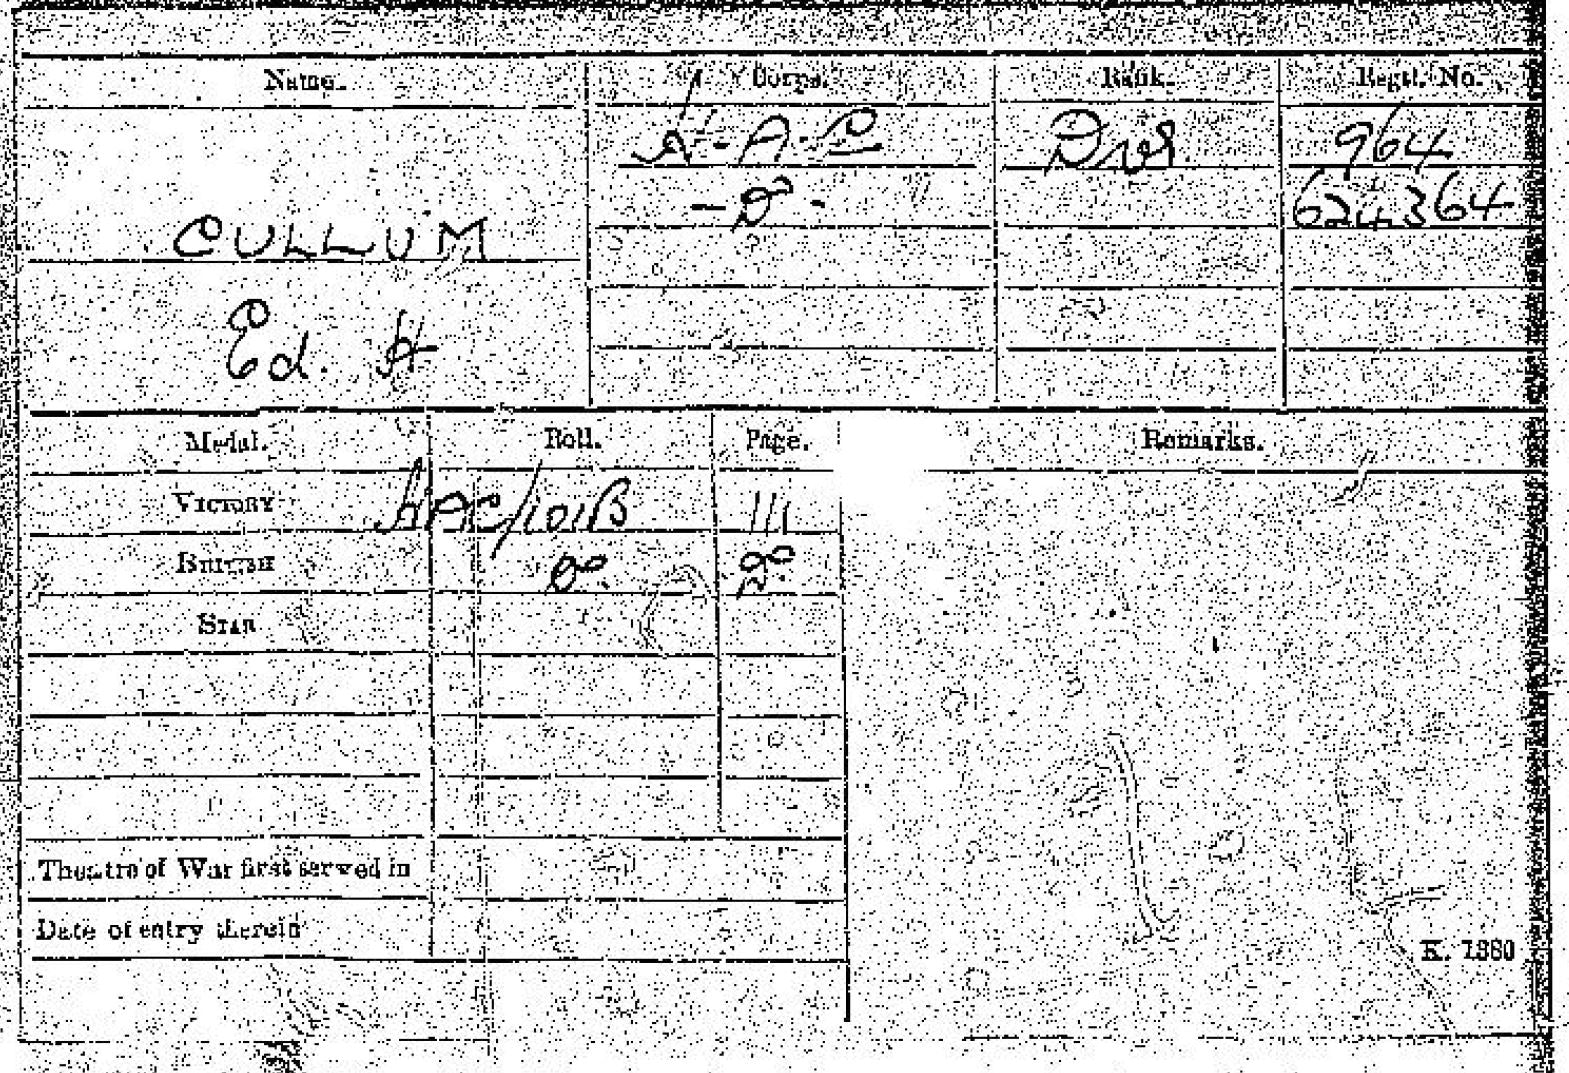 Name. Corps. Rank. Regtl. No.
H.A.C Dvr 964
- Do - 624364
CULLUM
Ed. H
Medal. Roll. Page. Remarks.
VICTORY HAC/101B 111
BRITISH Do. Do.
STAR
Theatre of War first served in
Date of entry therein
K. 1380